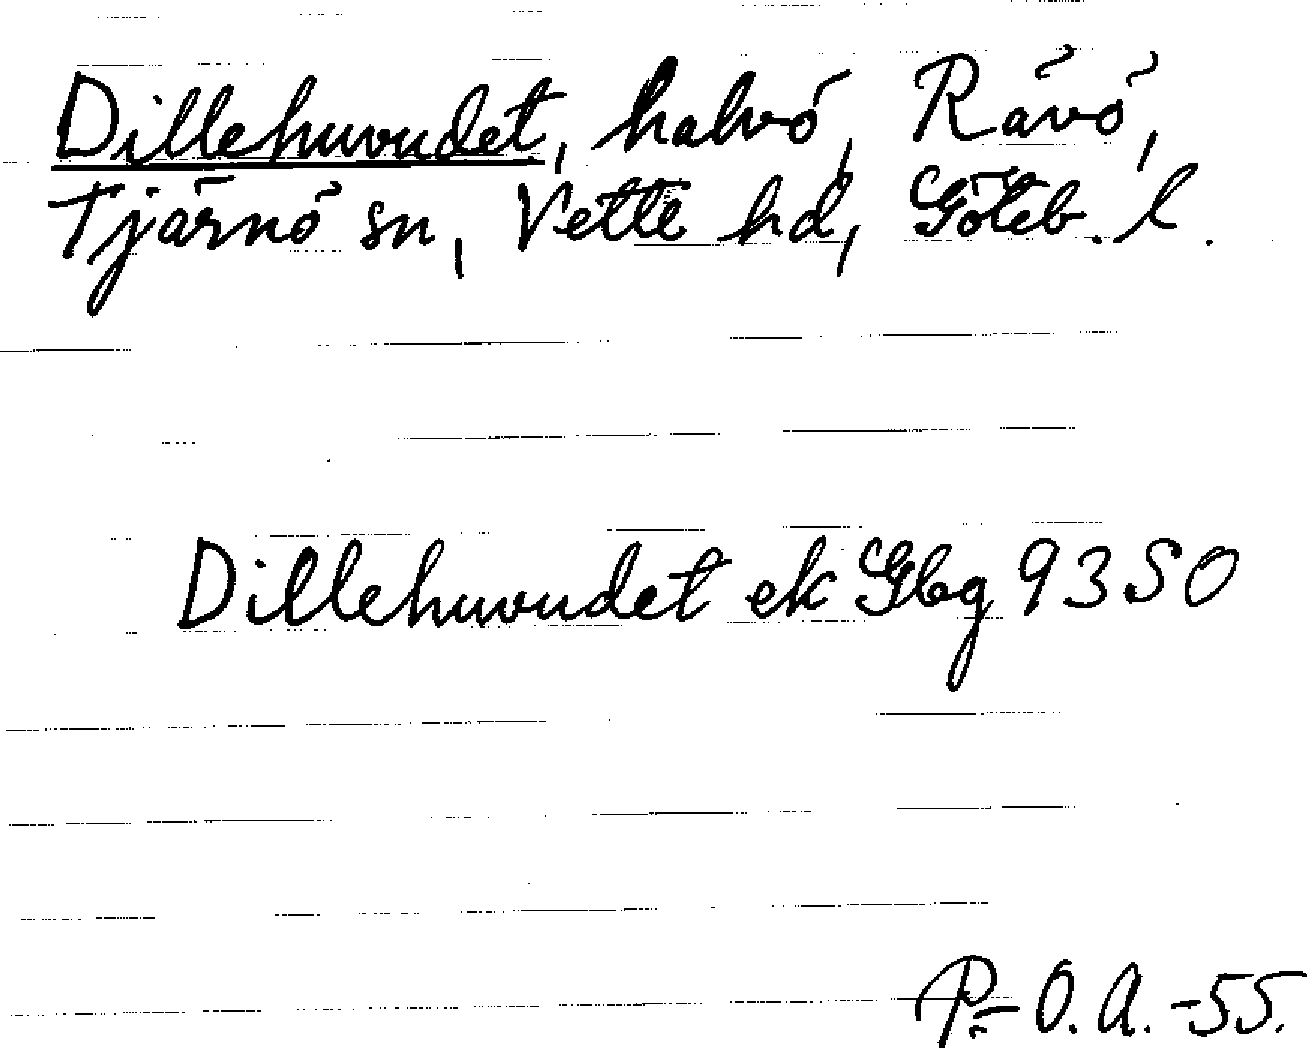 Dillehuvudet, halvö, Råvö,
Tjärnö sn, Vette hd, Göteb. l.
Dillehuvudet ek Gbg 9350
P.-O.A.-55.